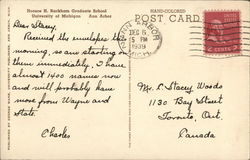 Horace H. Rackham Graduate School
University of Michigan Ann Arbor
HAND-COLORED
POST CARD
ANN ARBOR
DEC 6
5 PM
1939
MICH.
Dear Stacey,
Received the envelopes this
morning, so am starting on
them immediately. I have
almost 1400 names now
and will probably have
more from Wayne and
State.
Charles
Mr. C. Stacey Woods
1130 Bay Street
Toronto, Ont.
Canada